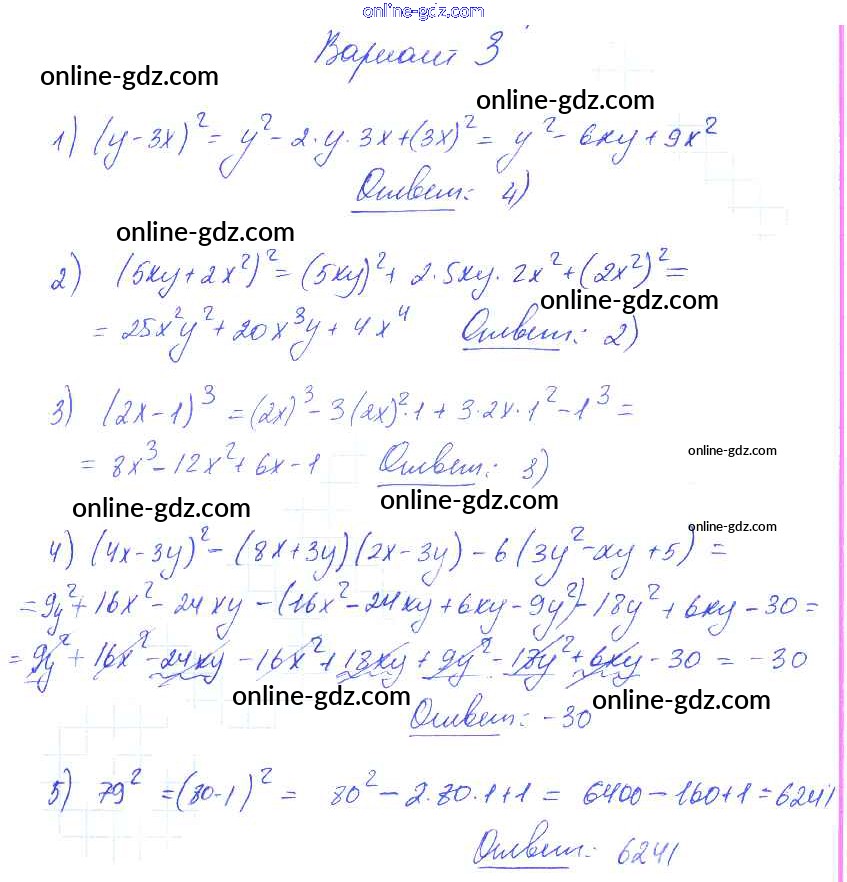 online-gdz.com
Вариант 3
online-gdz.com
online-gdz.com
1) (y-3x)² = y² - 2·y·3x+(3x)² = y² - 6xy + 9x²
Ответ: 4)
online-gdz.com
2) (5xy+2x²)² = (5xy)² + 2·5xy·2x² + (2x²)² =
online-gdz.com
= 25x²y² + 20x³y + 4x⁴ Ответ: 2)
3) (2x-1)³ = (2x)³ - 3(2x)²·1 + 3·2x·1² - 1³ =
online-gdz.com
= 8x³ - 12x² + 6x - 1 Ответ: 3)
online-gdz.com
online-gdz.com
online-gdz.com
4) (4x-3y)² - (8x+3y)(2x-3y) - 6(3y²-xy+5) =
= 9y² + 16x² - 24xy - (16x² - 24xy + 6xy - 9y²) - 18y² + 6xy - 30 =
= 9y² + 16x² - 24xy - 16x² + 18xy + 9y² - 18y² + 6xy - 30 = -30
online-gdz.com
online-gdz.com
Ответ: -30
5) 79² = (80-1)² = 80² - 2·80·1+1 = 6400 - 160+1 = 6241
Ответ: 6241